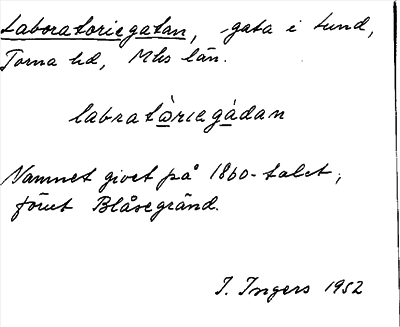 Laboratoriegatan, gata i Lund,
Torna hd, Mlhs län.
labratò̱riegá̱dan
Namnet givet på 1860-talet;
förut Blåsegränd.
I. Ingers 1952